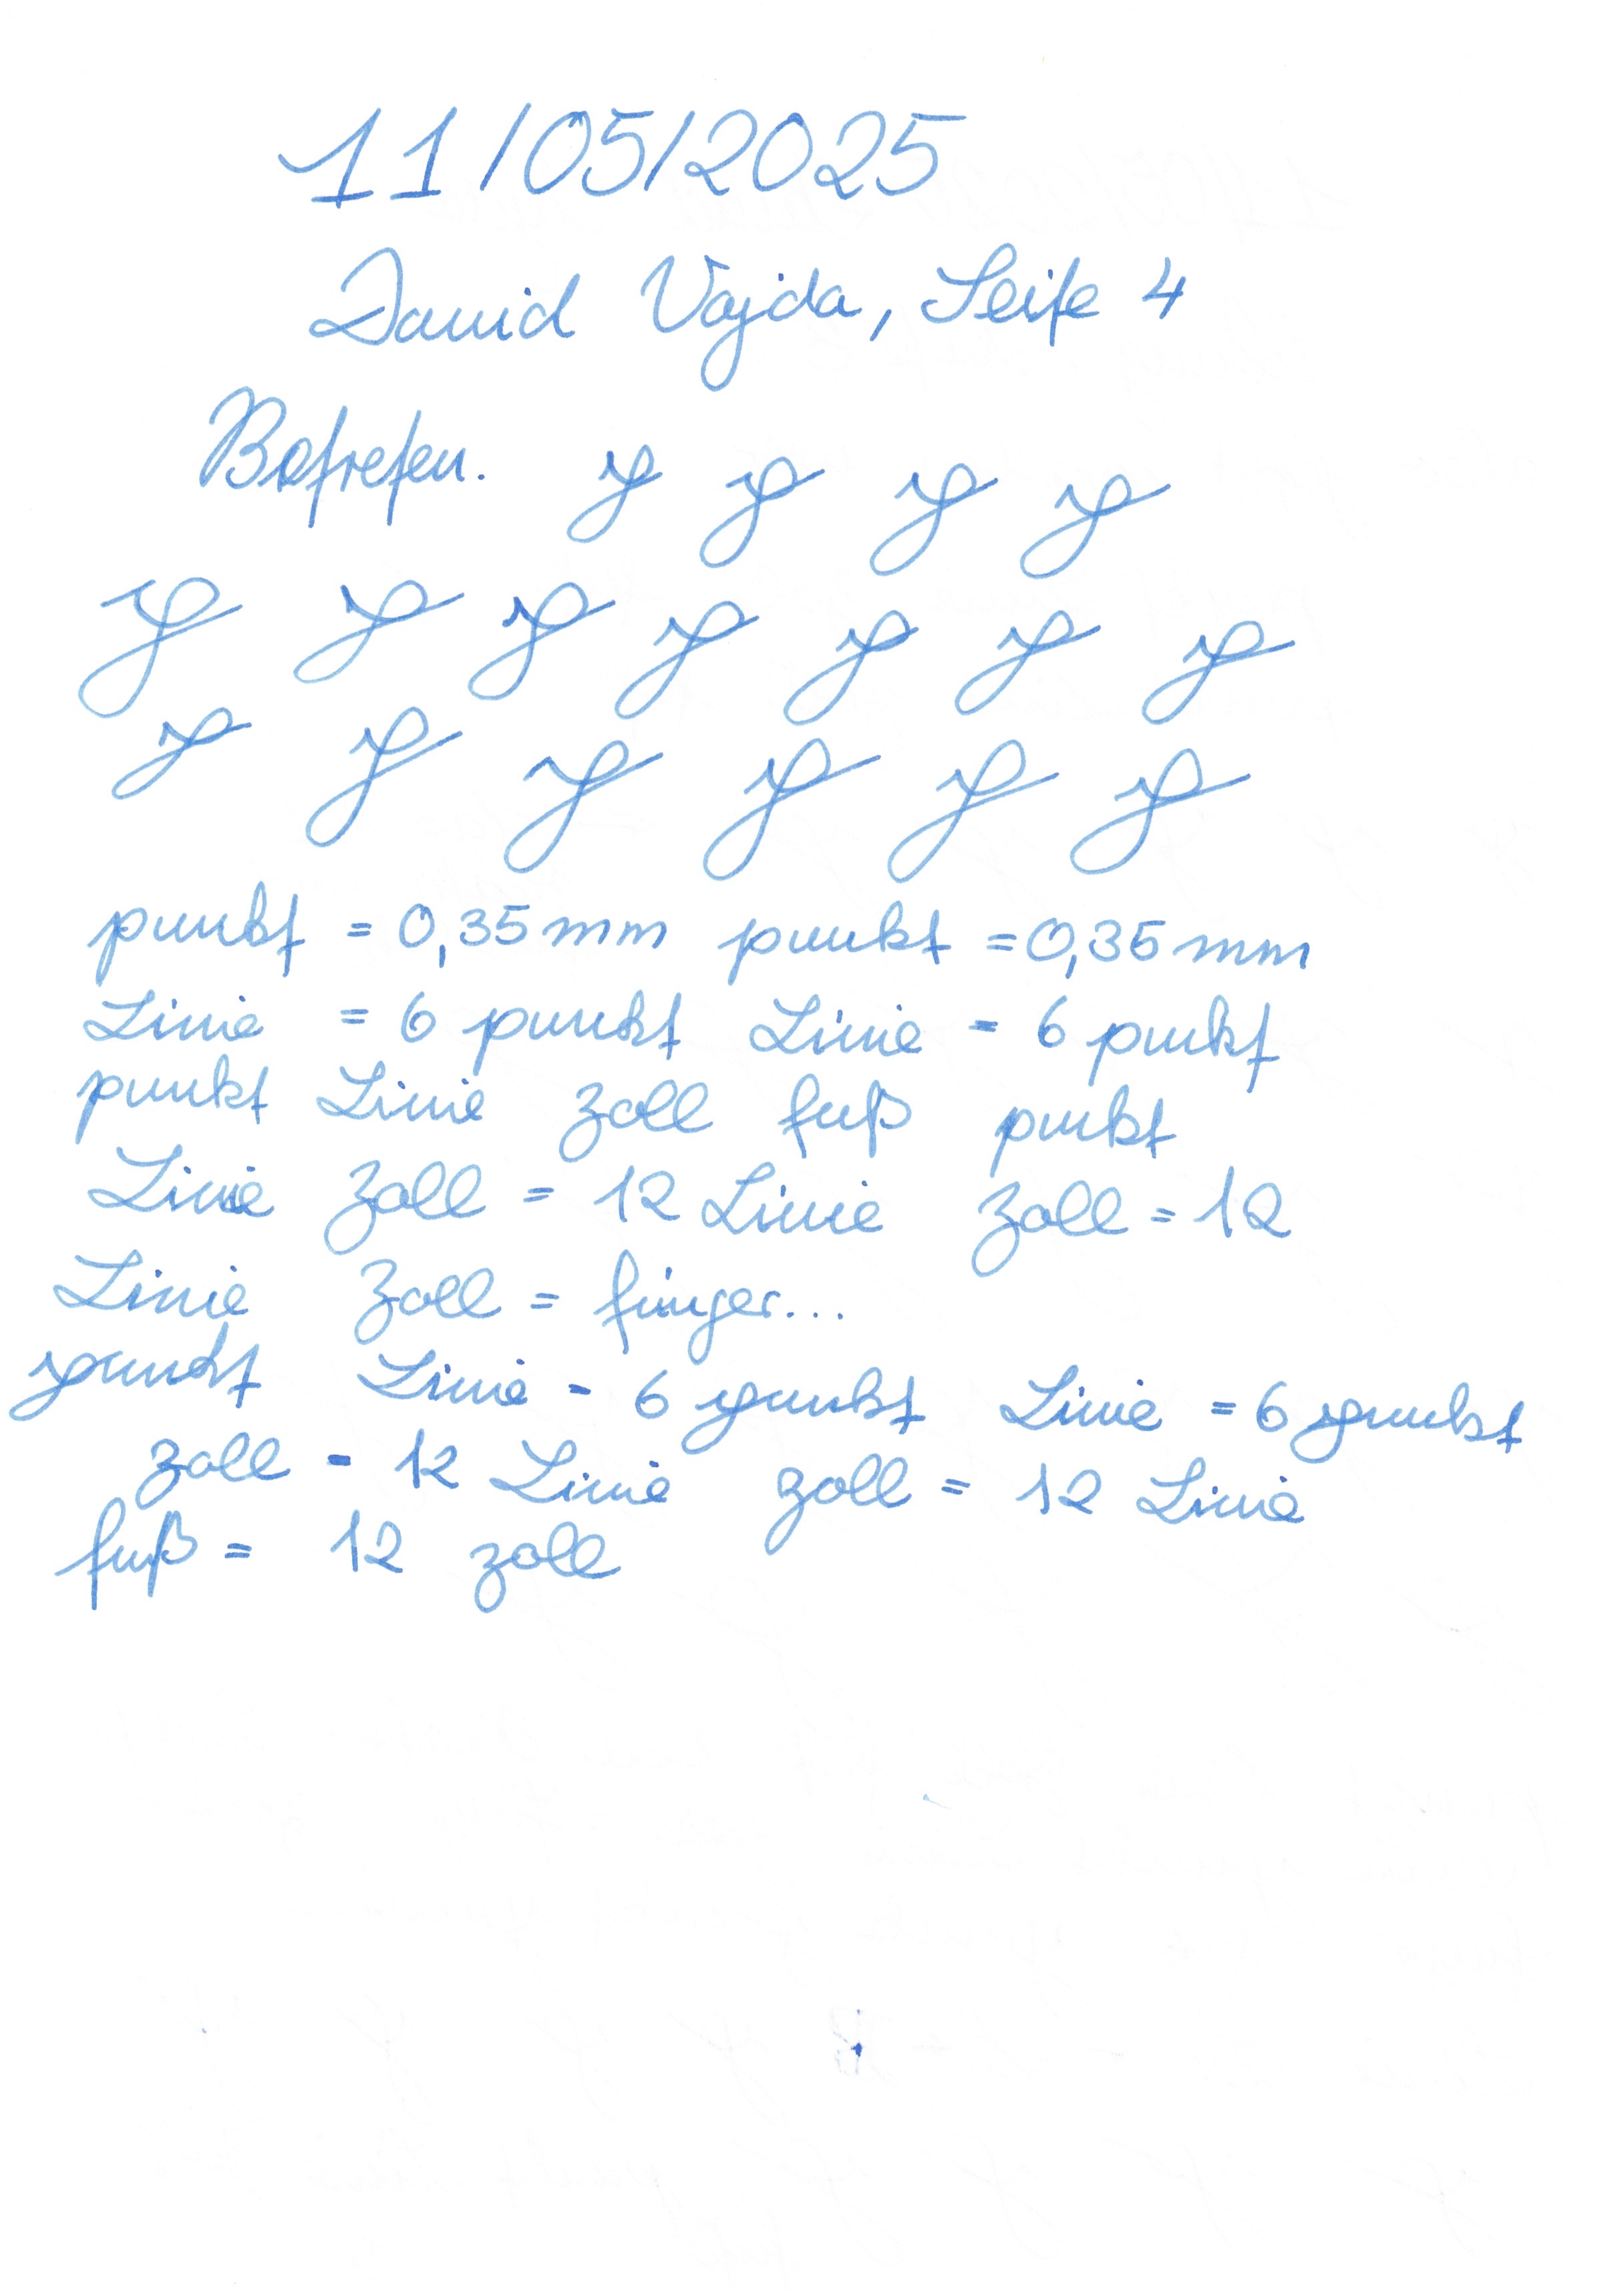 11/05/2025
David Vajda, Seite 4
Betreten.
punkt = 0,35mm punkt = 0,35mm
Linie = 6 punkt Linie = 6 punkt
punkt Linie zoll fuß punkt
Linie zoll = 12 Linie zoll = 12
Linie zoll = finger...
punkt Linie = 6 punkt Linie = 6 punkt
zoll = 12 Linie zoll = 12 Linie
fuß = 12 zoll